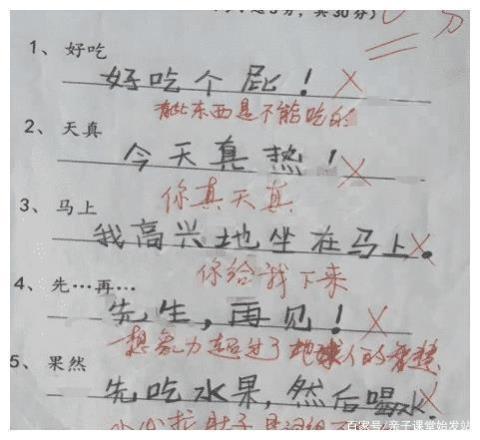 共30分）
分
1、好吃
好吃个屁！
有些东西是不能吃的
2、天真
今天真热！
你真天真
3、马上
我高兴地坐在马上。
你给我下来
4、先…再…
先生，再见！
想象力超过了地球人的智慧
5、果然
先吃水果，然后喝水.
百家号/亲子课堂始发站